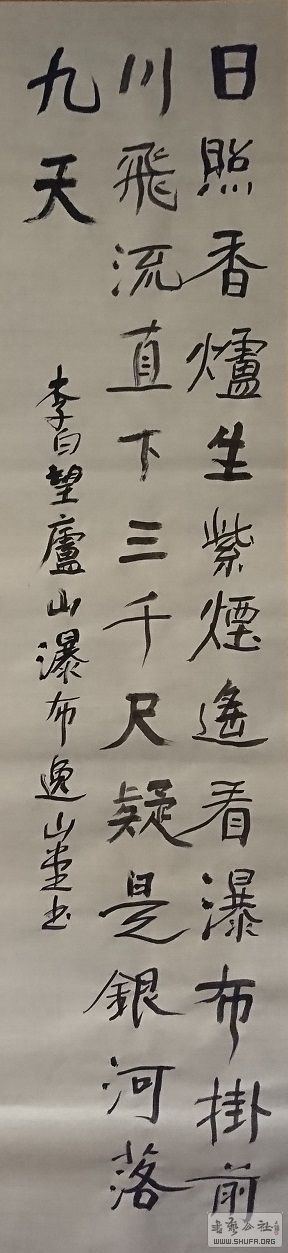 日照香爐生紫煙遙看瀑布掛前
川飛流直下三千尺疑是銀河落
九天
李白望廬山瀑布逸山堂书
书艺公社
WWW.SHUFA.ORG